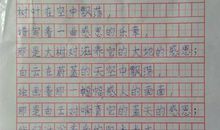 树叶在空中飘荡，
谱写着一曲感恩的乐章，
那是大树对滋养它的大地的感恩；
白云在蔚蓝的天空中飘荡，
绘画着一幅幅感人的画面，
那是白云对哺育它的蓝天的感恩；